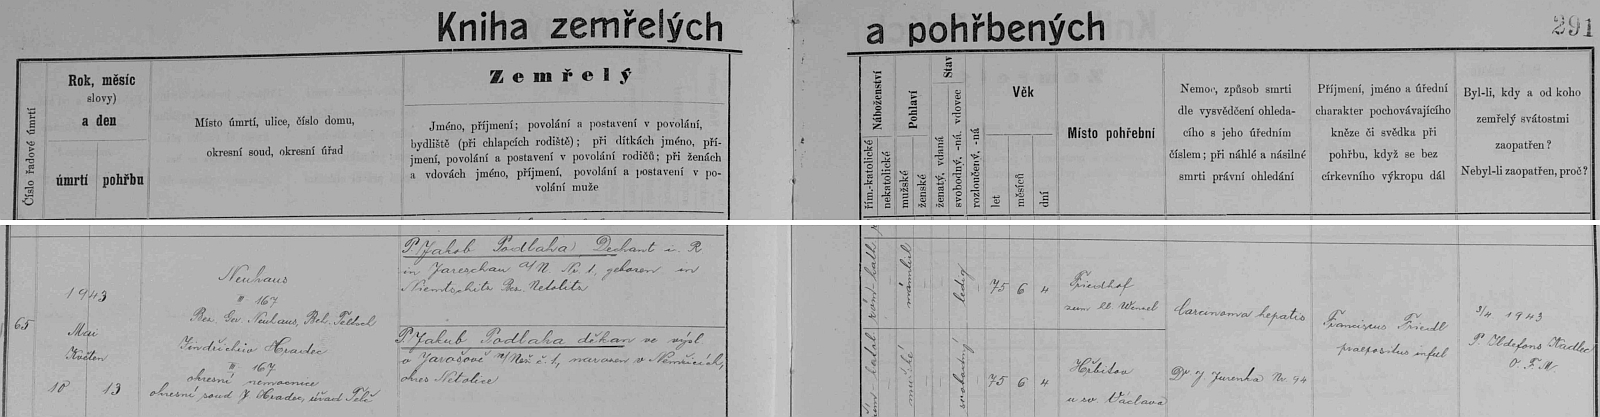 Kniha zemřelých a pohřbených
291
Číslo řadové úmrtí
Rok, měsíc
slovy)
a den
úmrtí
pohřbu
Místo úmrtí, ulice, číslo domu,
okresní soud, okresní úřad
Zemřelý
Jméno, příjmení; povolání a postavení v povolání,
bydliště (při chlapcích rodiště); při dítkách jméno, pří-
jmení, povolání a postavení v povolání rodičů; při ženách
a vdovách jméno, příjmení, povolání a postavení v po-
volání muže
Náboženství
řím.-katolické
nekatolické
Pohlaví
mužské
ženské
Stav
ženatý, vdaná
svobodný, -ná. vdovec
rozloučený, -ná
Věk
let
měsíců
dní
Místo pohřební
Nemoc, způsob smrti
dle vysvědčení ohleda-
cího s jeho úředním
číslem; při náhlé a násilné
smrti právní ohledání
Příjmení, jméno a úřední
charakter pochovávajícího
kněze či svědka při
pohřbu, když se bez
církevního výkropu dál
Byl-li, kdy a od koho
zemřelý svátostmi
zaopatřen?
Nebyl-li zaopatřen, proč?
65
1943
Mai
Květen
10
13
Neuhaus
III 167
Bez. Ger. Neuhaus, Beh. Teltsch
Jindřichův Hradec
III 167
okresní nemocnice
okresní soud J. Hradec, úřad Telč
P. Jakob Podlaha, Dechant i. R
in Jareschau a/N. Nr. 1, geboren in
Niemtschitz Bez. Netolitz
P. Jakub Podlaha děkan ve výsl
v Jarošově n/Než. č. 1, narozen v Němčicích,
okres Netolice
röm. kath
řím. katol
männlich
mužské
ledig
svobodný
75 6 4
75 6 4
Friedhof
zum hl. Wenzel
Hřbitov
u sv. Václava
Carcinoma hepatis
Dr. J. Jurenka Nr. 94
Franciscus Friedl
praepositus inful
3/4. 1943
P. Ildefons Kadlec
O. F. M.